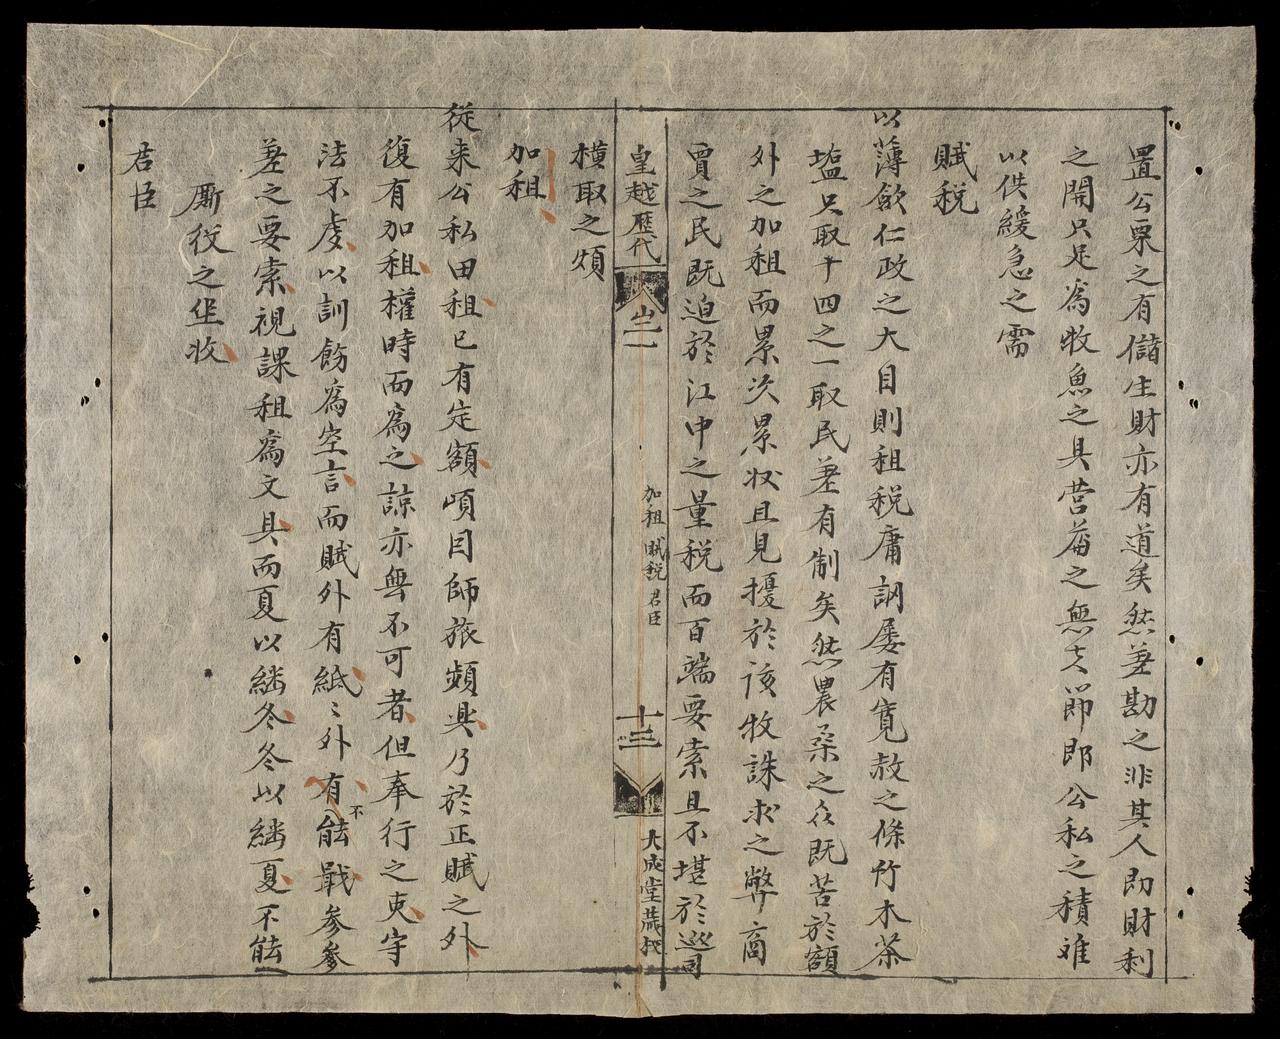 置公栗之有儲生財亦有道矣然差勘之非其人即財利
之開只足為牧魚之具营葘之無文節即公私之積难
以供緩急之需
賦税
以薄歛仁政之大目則租税庸調屡有寛赦之條竹木茶
塩只取十四之一取民差有制矣然農桑之夜既苦於額
外之加租而累次累状且見擾於該牧誅求之弊商
賈之民既迫於江中之量税而百端要索且不堪於巡司
皇越歷代 卷二 加租 賦税 君臣 十三 大成堂蔵板
横取之煩
加租
従来公私田租已有定額頃因師旅頻興乃於正賦之外
復有加租權時而為之諒亦無不可者但奉行之吏守
法不虔以訓飭為空言而賦外有紙〻外有不能戢参参
差之要索視課租為文具而夏以繼冬冬以繼夏不能
厮役之坐收
君臣